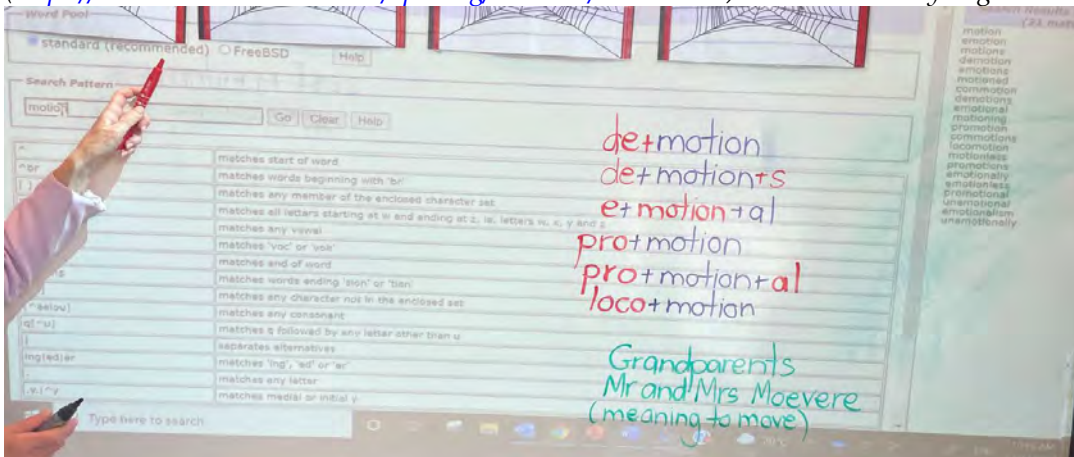 Word Pool
standard (recommended) FreeBSD Help
Search Pattern
motio
Go Clear Help
^
matches start of word
^br
matches words beginning with 'br'
matches any member of the enclosed character set
matches all letters starting at w and ending at z, ie. letters w, x, y and z
matches any vowel
matches 'voc' or 'vok'
matches end of word
matches words ending 'sion' or 'tion'
matches any character not in the enclosed set
[^aeiou]
matches any consonant
q[^u]
matches q followed by any letter other than u
|
separates alternatives
ing|ed|er
matches 'ing', 'ed' or 'er'
.
matches any letter
matches medial or initial y
Type here to search
20°C
de+motion
de+motion+s
e+motion+al
pro+motion
pro+motion+al
loco+motion
Grandparents
Mr and Mrs Moevere
(meaning to move)
motion
emotion
motions
demotion
emotions
motioned
commotion
demotions
emotional
motioning
promotion
commotions
locomotion
motionless
promotions
emotionally
emotionless
promotional
unemotional
emotionalism
unemotionally